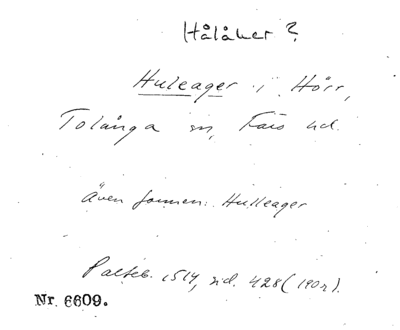 Hålåker?
Huleager i Hörr,
Tolånga sn, Färs hd.
även formen: Hulleager
Palteb. 1514, sid. 428 (190r).
Nr. 6609.